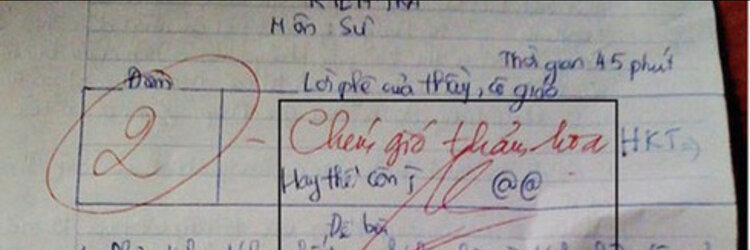 KIỂM TRA
Môn: Sử
Thời gian 45 phút
Điểm
Lời phê của thầy, cô giáo
2
- Chém gió thảm họa
HKT
Hay thế còn
@@
Đề bài